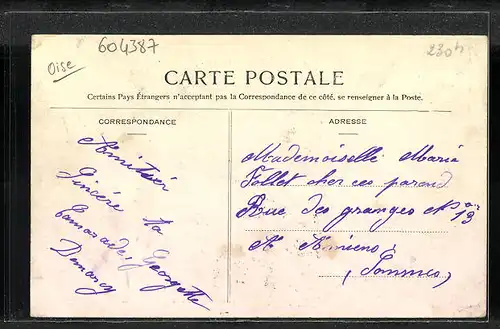 604387
230h
Oise
CARTE POSTALE
Certains Pays Étrangers n'acceptant pas la Correspondance de ce côté, se renseigner à la Poste.
CORRESPONDANCE
Amitiér
Sincére ta
Camarade
Georgette
ADRESSE
Mademoiselle Maria
Follet cher ces parend
Rue des granges Nº 13
A Amiens
(Sommes)